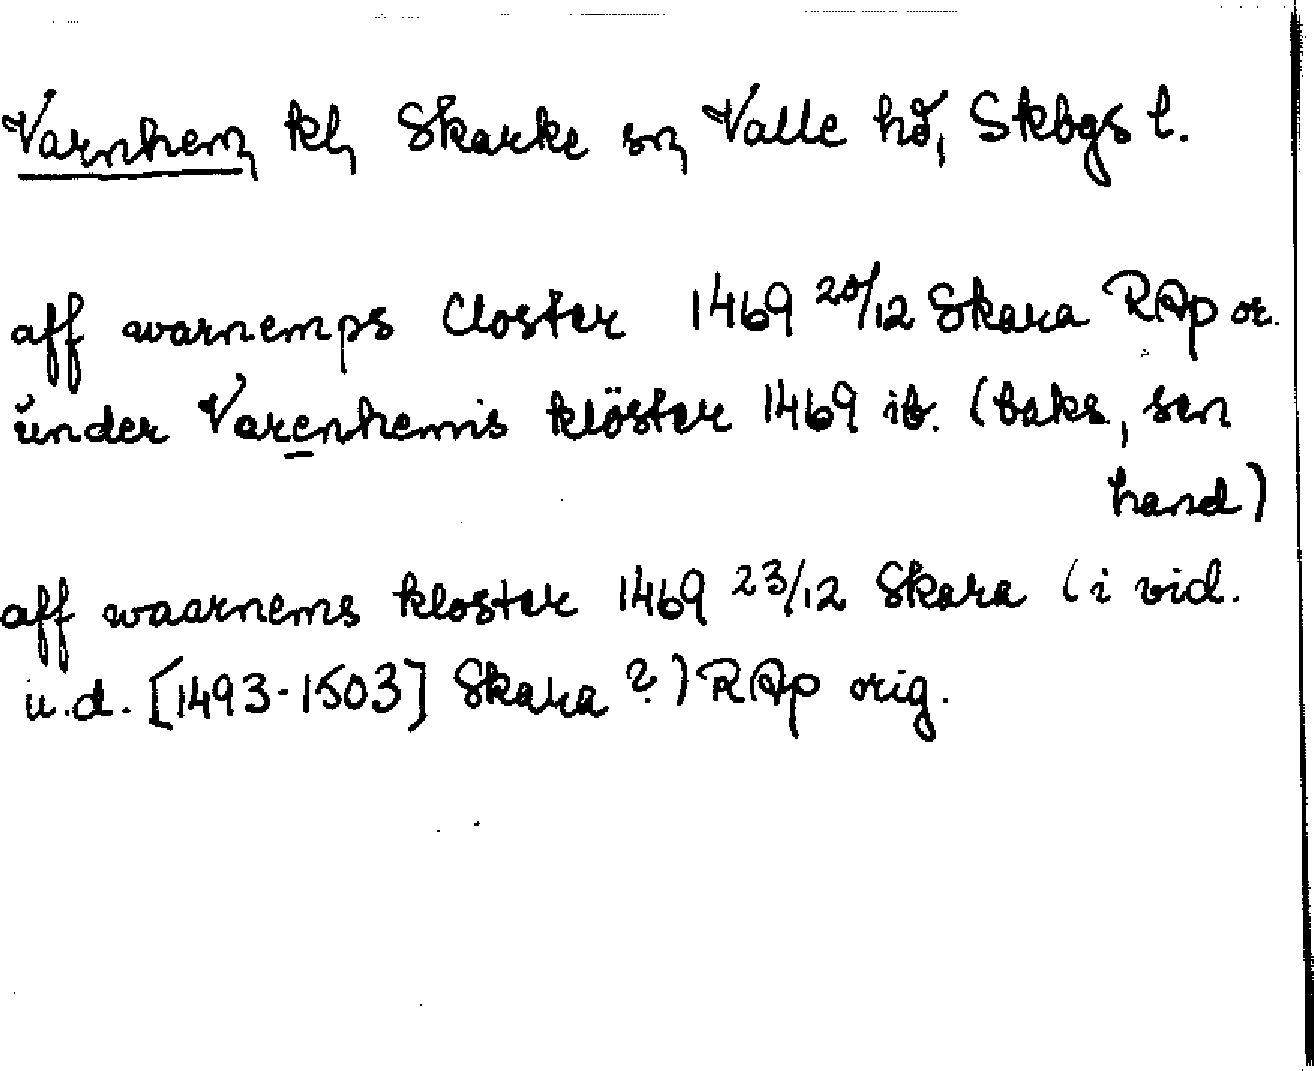 Varnhem, kl, Skarke sn, Valle hd, Skbgs l.
aff warnemps Closter 1469 20/12 Skara RAp or.
ŭnder Varenhems klöster 1469 ib. (baks., sen
hand)
aff waarnems kloster 1469 23/12 Skara (i vid.
u.d. [1493-1503] Skara ?) RAp orig.